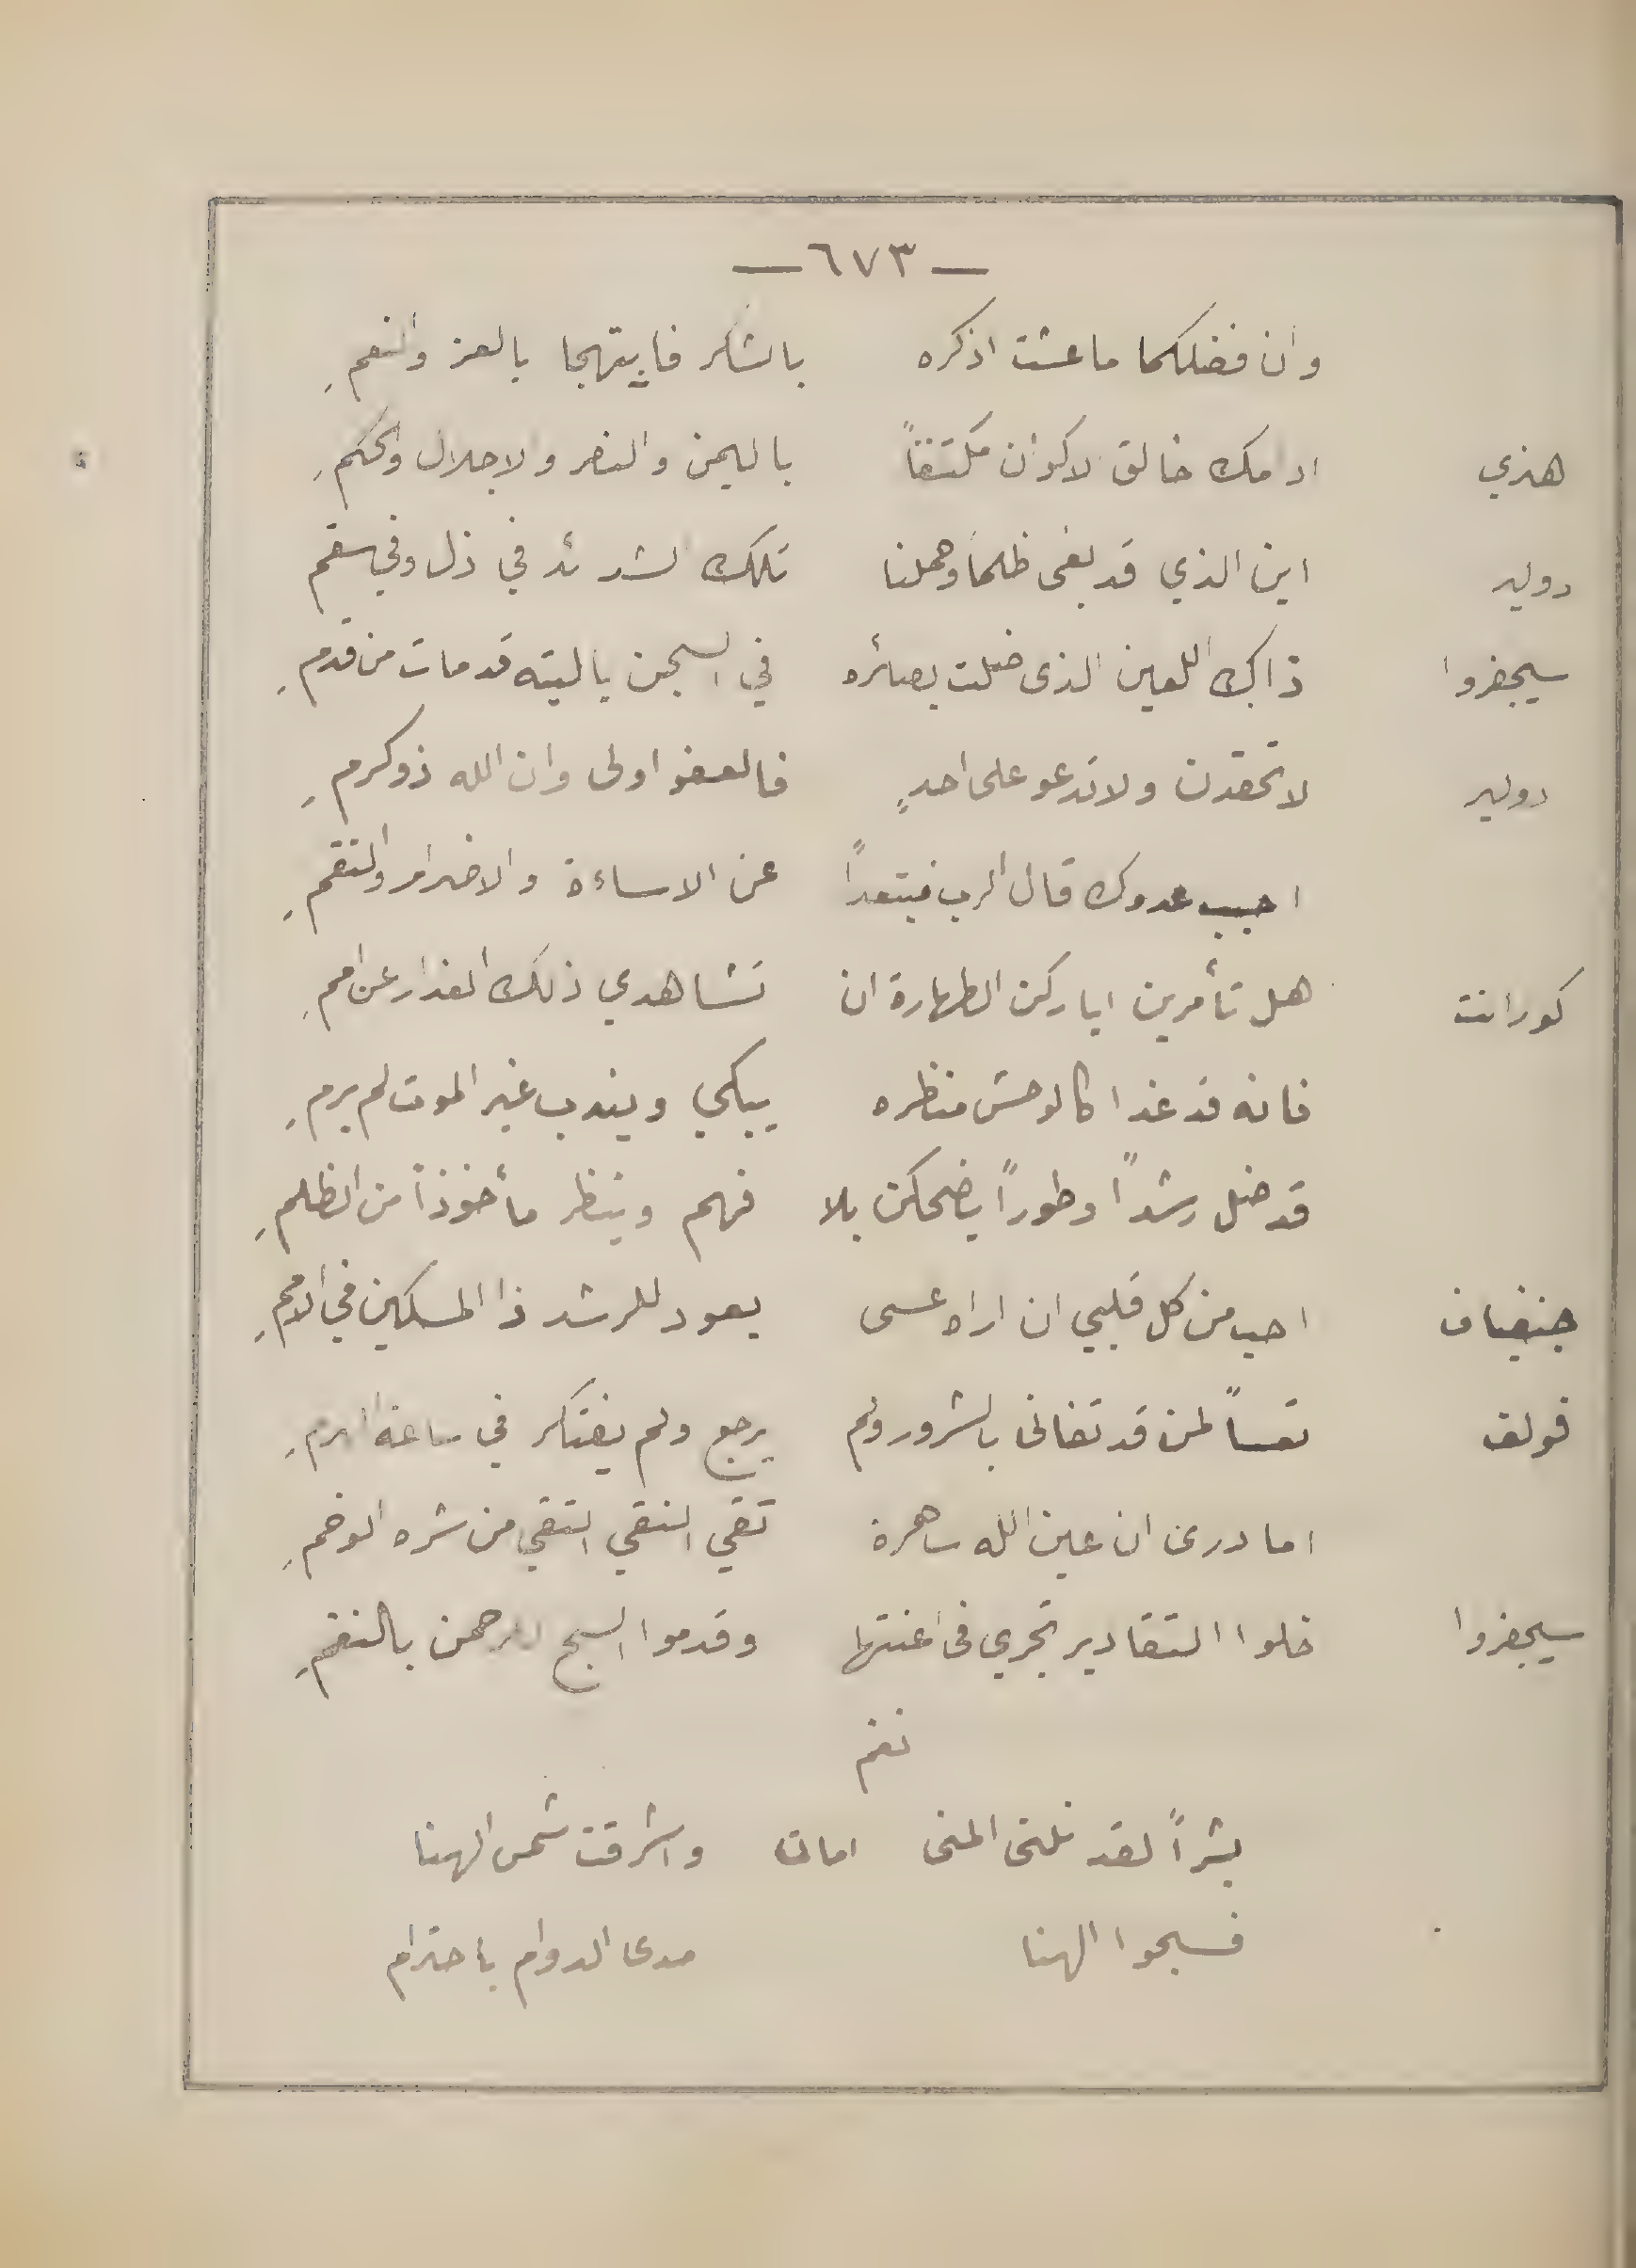 — ٦٧٣ —
وان فضلكما ما عشت اذكره بالشكر فابتهجا بالعز والنعمِ
هنري ادامك خالق الاكوان مكتنفاً باليمن والنصر والاجلال والحكمِ
دولير اين الذي قد بغى ظلماً وحملنا تلك الشدائد في ذل وفي سقم
سيجفروا ذاك اللعين الذى ضلت بصائره في السجن ياليته قد مات من قدمِ
دولير لا تحقدن ولا تدعو على احدٍ فالعفو اولى وان الله ذو كرمِ
احبب عدوك قال الرب مبتعداً عن الاساءة والاضرار والنقمِ
كورانت هل تأمرين ايا ركن الطهارة ان تشاهدي ذلك الغدار عن اممِ
فانه قد غدا كالوحش منظره يبكي ويندب غير الموت لم يرمِ
قد ضل رشداً وطوراً يضحكن بلا فهم وينظر مأخوذاً من الظلمِ
جنفياف احب من كل قلبي ان اراه عسى يعود للرشد ذا المسكين في الاممِ
قولف تعساً لمن قد تفانى بالشرور ولم يرجع ولم يفتكر في ساعة الهرمِ
اما درى ان عين الله ساهرة تقي النقي التقي من شره الوخمِ
سيجفروا خلوا التقادير تجري فى اعنتها وقدموا السبح للرحمن بالنغمِ
نغم
بشراً لقد نلنى المنى امان واشرقت شمس الهنا
فسبحوا الهنا مدى الدوام باحترام